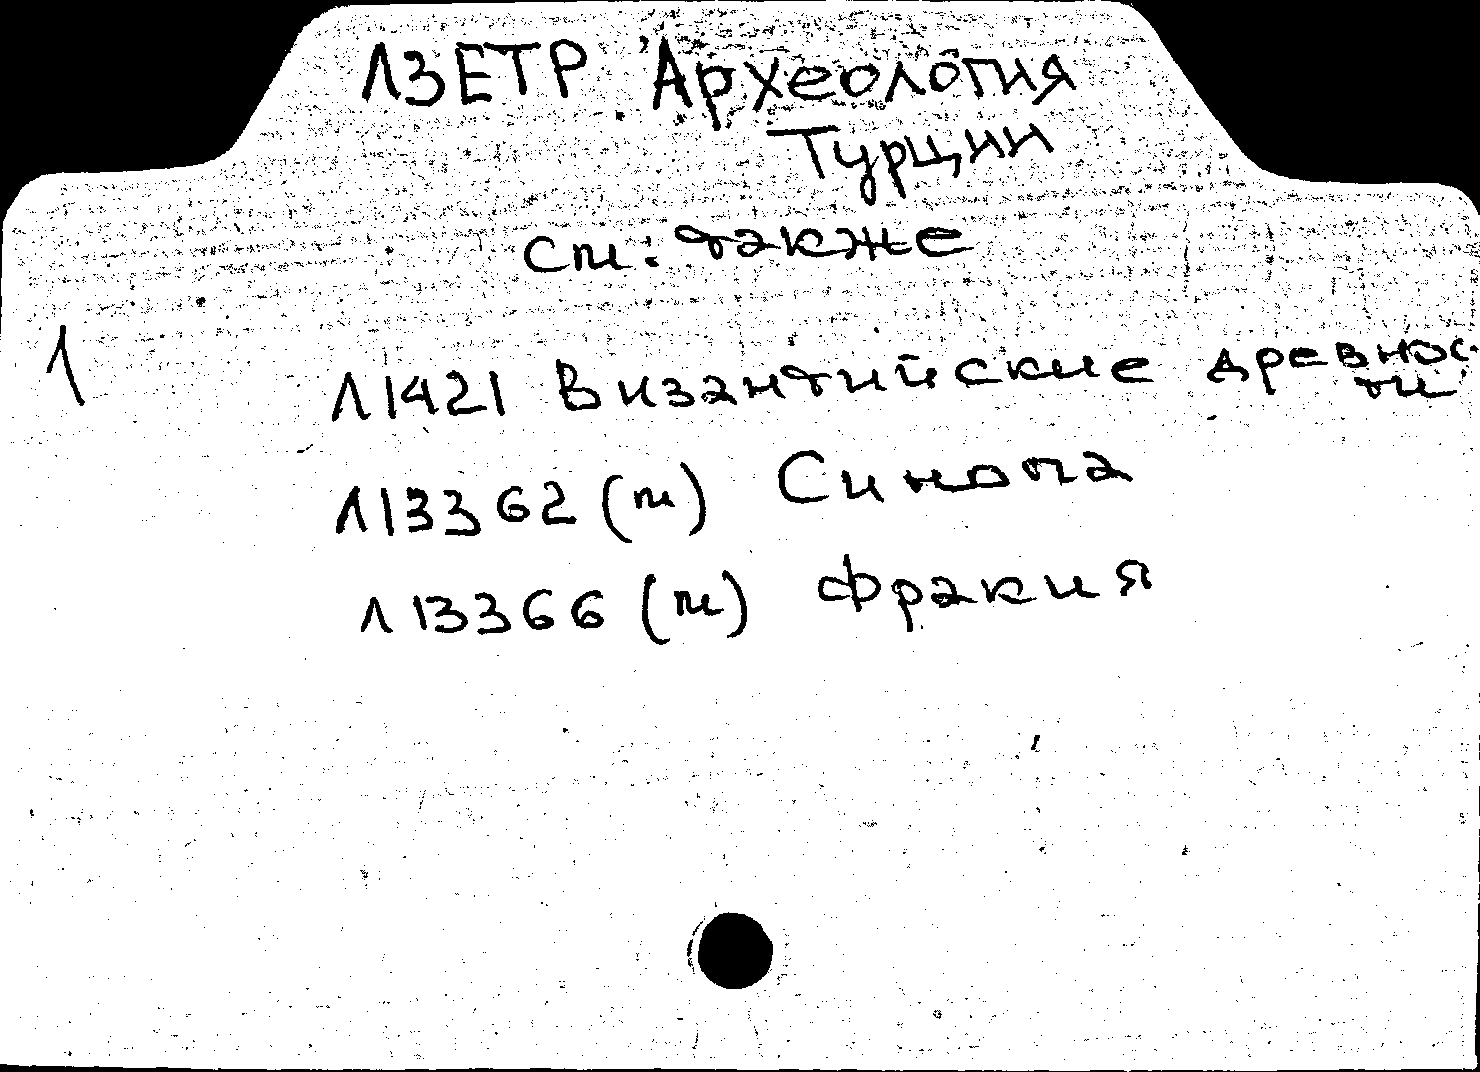 Л3ЕТР Археология
Турции
см: также
Л
Л1421 Византийские древнос-
ти
Л13362 (м) Синопа
Л13366 (м) Фракия